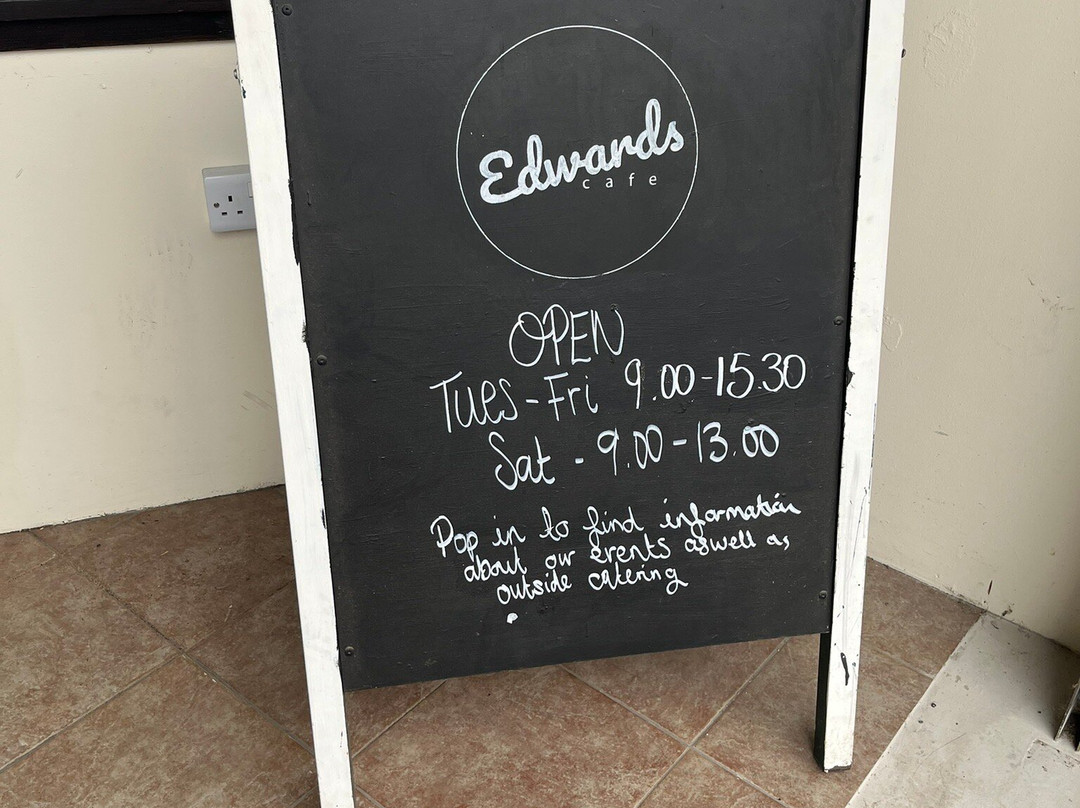 Edwards
cafe
OPEN
Tues - Fri 9.00-15.30
Sat - 9.00-13.00
Pop in to find information
about our events aswell as
outside catering